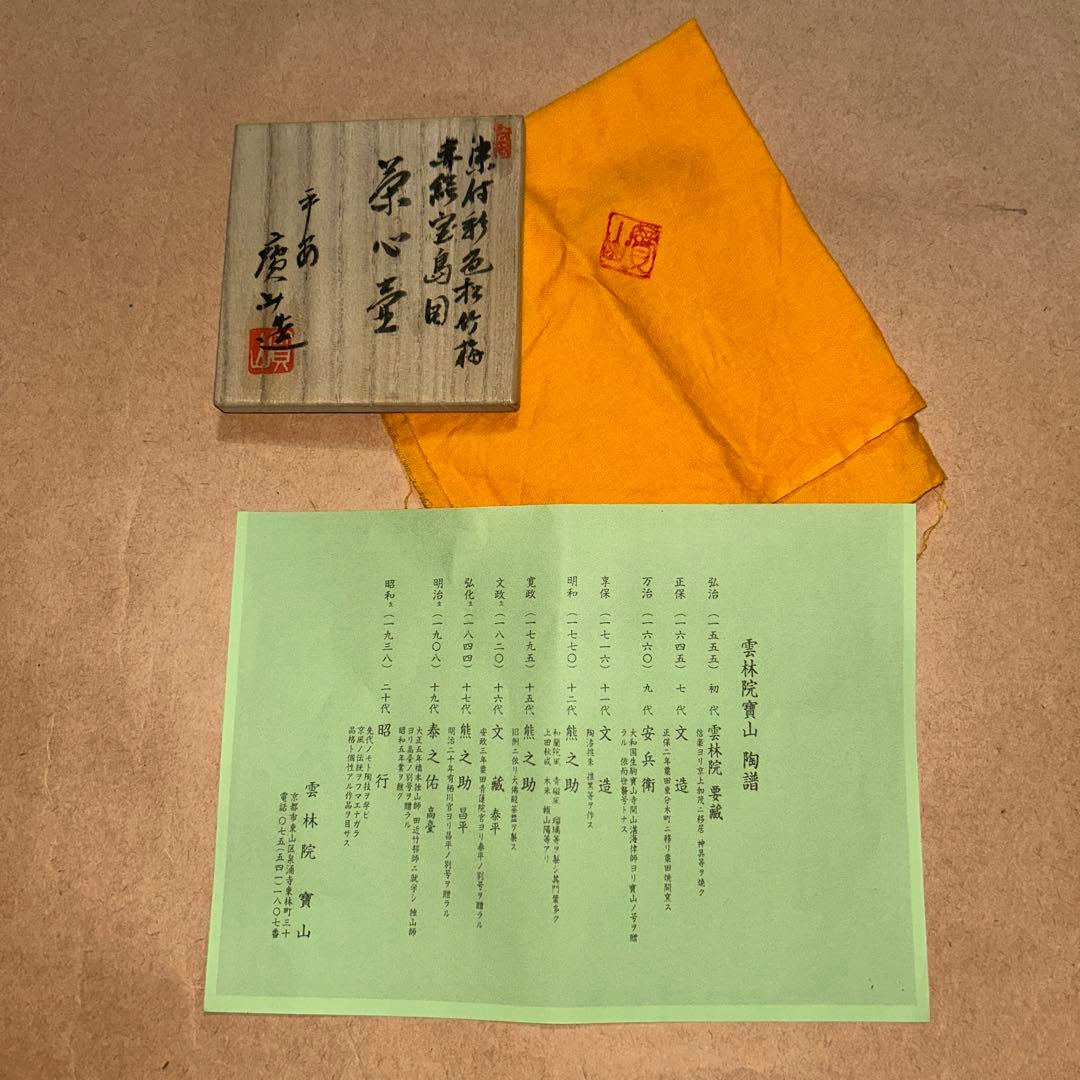 染付彩色松竹梅
茶心壷
平安
寳山造
寳山
雲林院寶山 陶譜
弘治 (一五五五) 初代 雲林院 要藏
信楽ヨリ京上加茂ニ移居 神具等ヲ焼ク
正保 (一六四五) 七代 文造
正保二年粟田東分木町ニ移リ粟田焼開窯ス
万治 (一六六〇) 九代 安兵衛
大和国生駒寶山寺開山湛海律師ヨリ寶山ノ号ヲ贈
ラル 依而世襲号トナス
享保 (一七一六) 十一代 文造
明和 (一七七〇) 十二代 熊之助
和蘭陀風 青磁風 瑠璃等ヲ製シ其門葉多ク
上田秋成 木米 頼山陽等アリ
寛政 (一七九五) 十五代 熊之助
旧例ニ依リ大佛殿茶盌ヲ製ス
文政生 (一八二〇) 十六代 文藏 泰平
安政三年粟田青蓮院宮ヨリ泰平ノ別号ヲ贈ラル
弘化生 (一八四四) 十七代 熊之助 昌平
明治二十年有栖川宮ヨリ昌平ノ別号ヲ贈ラル
明治生 (一九〇八) 十九代 泰之佑 高臺
大正五年橋本独山師 田近竹邨師ニ就学シ 独山師
ヨリ高臺ノ別号ヲ贈ラル
昭和五年業ヲ継グ
昭和生 (一九三八) 二十代 昭行
先代ノモト陶技ヲ学ビ
京風ノ伝統ヲフマエナガラ
品格ト個性アル作品ヲ目サス
雲林院 寶山
京都市東山区泉涌寺東林町三十
電話〇七五(五四一)一八〇七番